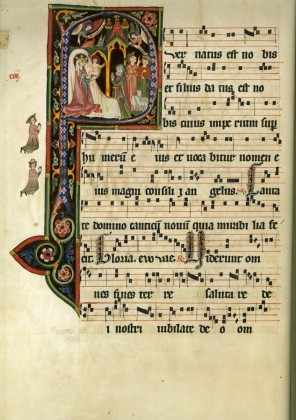 uer natus est no bis
et filius da tus est no
bis cuius impe rium sup
hu meru e ius et voca bitur nomen e
ius magni consili i an gelus Canta
te domino canticu nouu quia mirabi lia fe
cit Gloria euouae Uiderunt om
nes fines ter re saluta re de
i nostri iubilate de o om